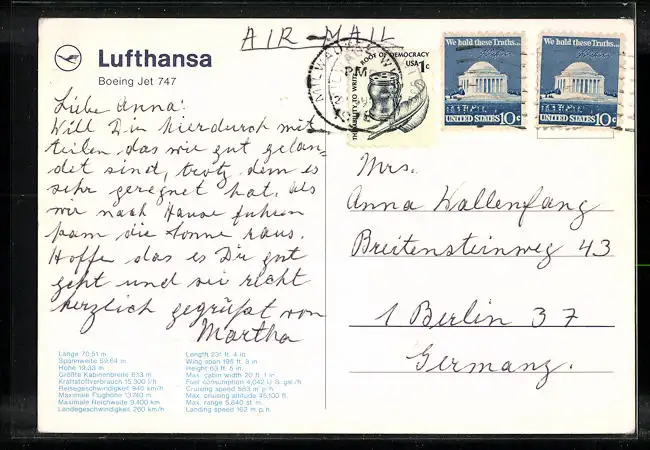 AIR-MAIL
Lufthansa
Boeing Jet 747
MILWAUKEE, WIS
PM
ROOT OF DEMOCRACY
USA 1c
THE ABILITY TO WRITE
We hold these Truths...
UNITED STATES 10c
We hold these Truths...
UNITED STATES 10c
Liebe Anna!
Will Dir hierdurch mit
teilen das wir gut gelan-
det sind, trotz dem es
sehr geregnet hat. Als
wir nach Hause fuhren
kam die Sonne raus.
Hoffe das es Dir gut
geht und sei recht
herzlich gegrüßt von
Martha
Mrs.
Anna Wallenfang
Breitensteinweg 43
1 Berlin 37
Germany.
Länge 70,51 m
Spannweite 59,64 m
Höhe 19,33 m
Größte Kabinenbreite 6,13 m
Kraftstoffverbrauch 15 300 l/h
Reisegeschwindigkeit 940 km/h
Maximale Flughöhe 13 740 m
Maximale Reichweite 9.400 km
Landegeschwindigkeit 260 km/h
Length 231 ft. 4 in.
Wing span 195 ft. 8 in.
Height 63 ft. 5 in.
Max. cabin width 20 ft. 1 in.
Fuel consumption 4,042 U.S. gal./h
Cruising speed 583 m.p.h.
Max. cruising altitude 45,100 ft.
Max. range 5,840 st. m.
Landing speed 162 m.p.h.